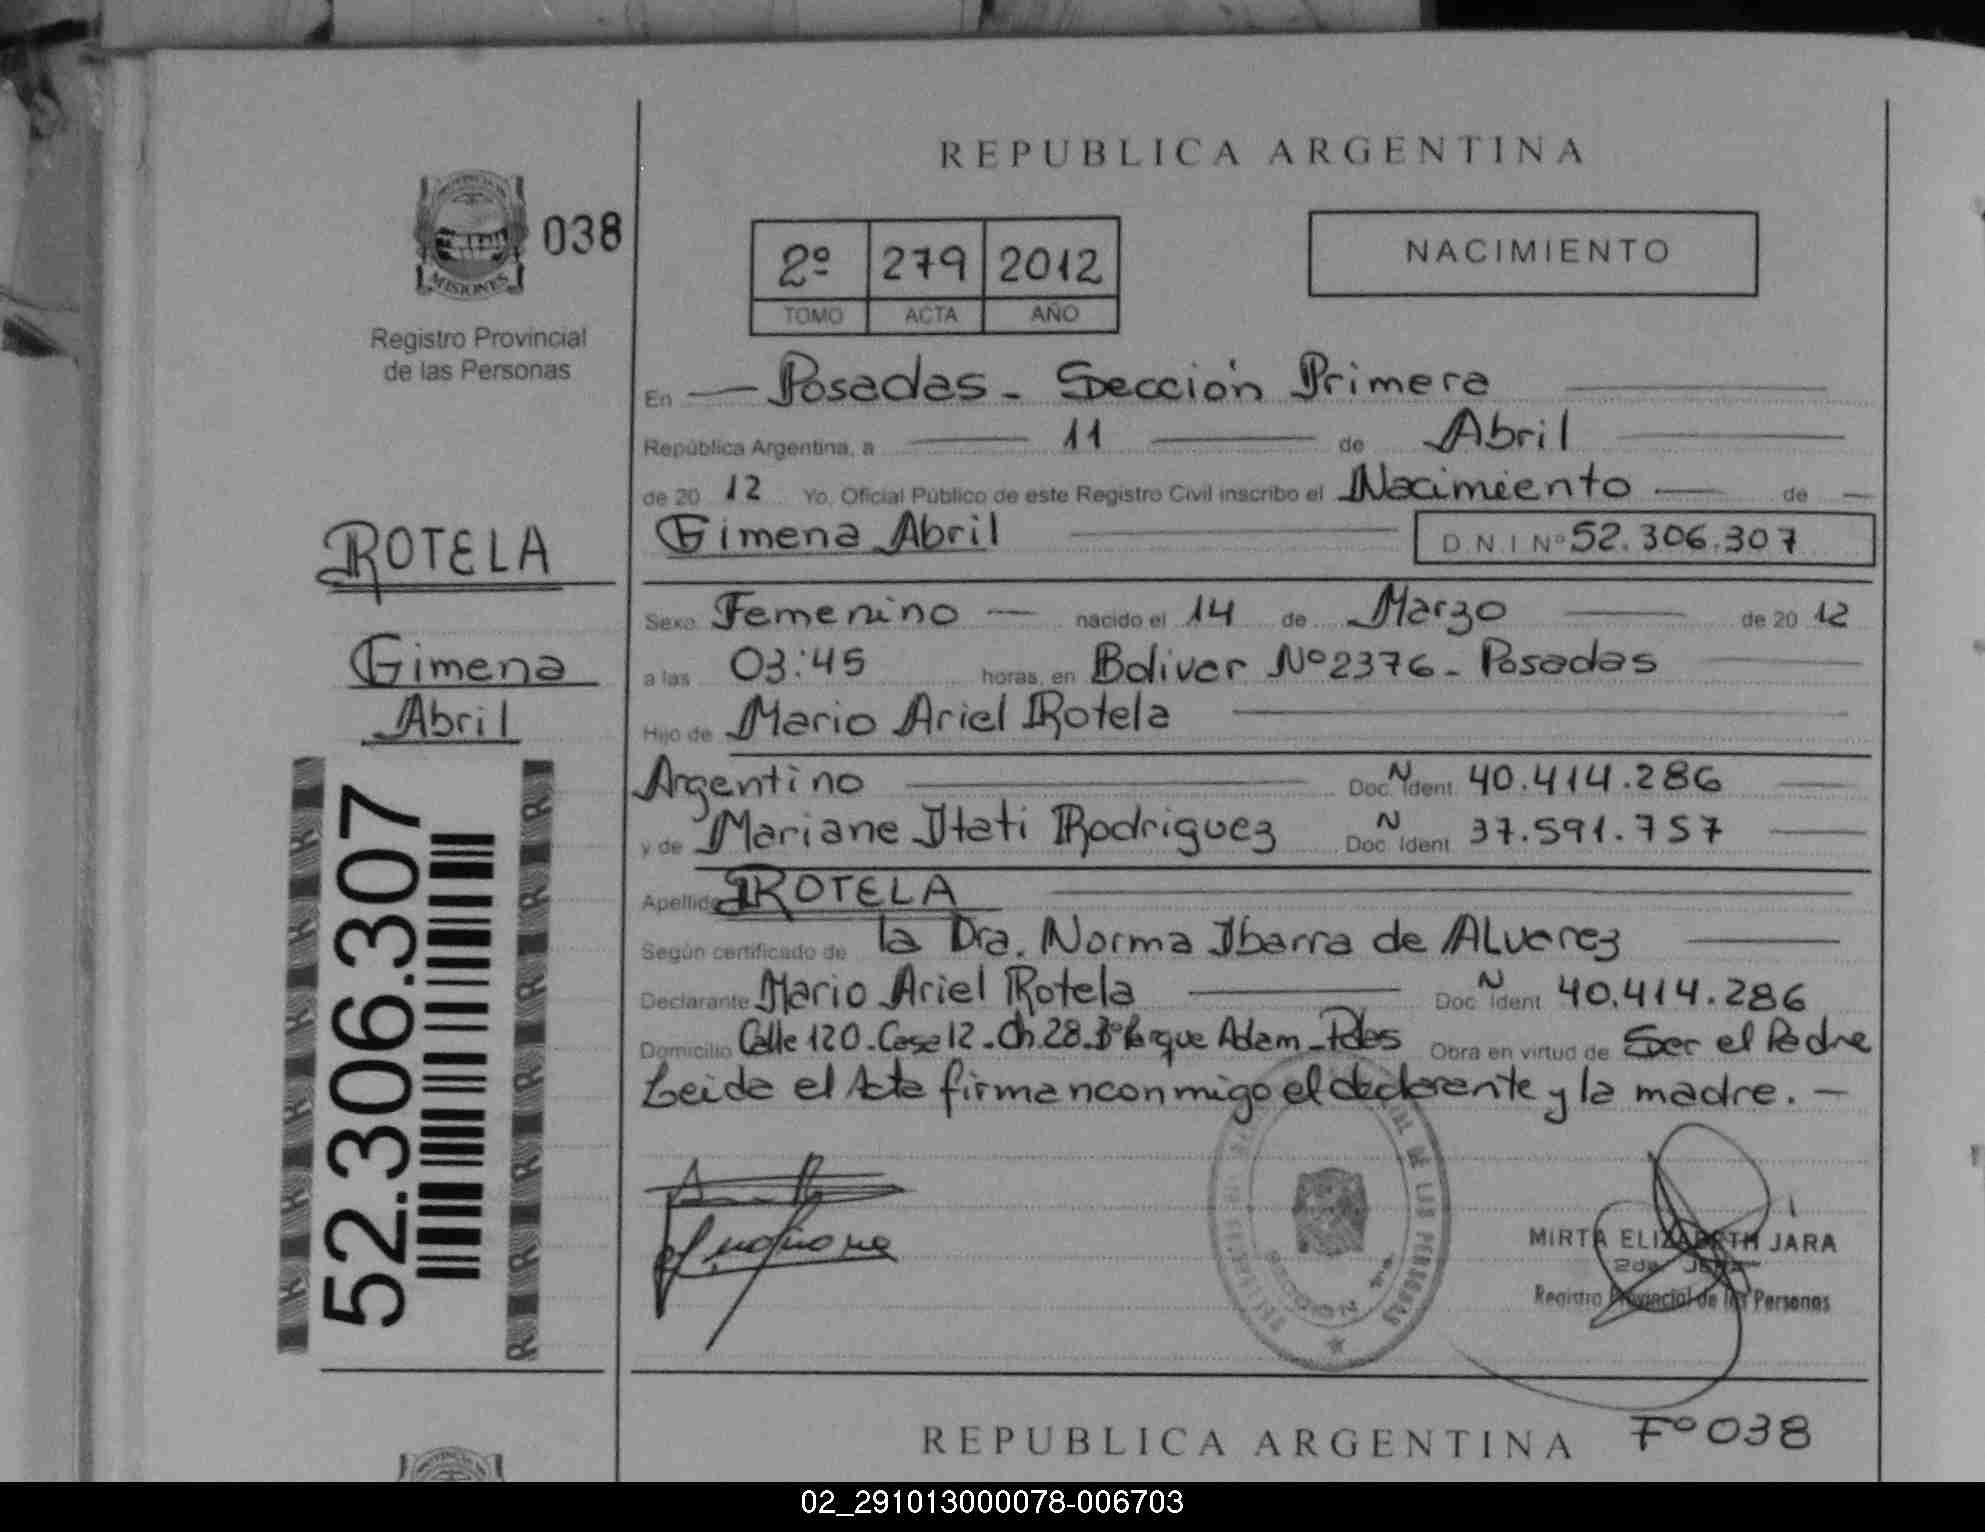 REPUBLICA ARGENTINA
MISIONES
038
Registro Provincial
de las Personas
2º 279 2012
TOMO ACTA AÑO
NACIMIENTO
En Posadas - Sección Primera
República Argentina, a 11 de Abril
de 20 12 Yo, Oficial Público de este Registro Civil inscribo el Nacimiento de
Gimena Abril D.N.I Nº 52.306.307
ROTELA
Gimena
Abril
52.306.307
Sexo Femenino nacido el 14 de Marzo de 20 12
a las 03:45 horas, en Bolivar Nº 2376 - Posadas
Hijo de Mario Ariel Rotela
Argentino Doc. N Ident 40.414.286
y de Mariane Itati Rodriguez Doc. N Ident 37.591.757
Apellido ROTELA
Según certificado de la Dra. Norma Ibarra de Alvarez
Declarante Mario Ariel Rotela Doc. N Ident 40.414.286
Domicilio Calle 120 - Casa 12 - Ch. 28 - Bº Parque Adam - Pdas Obra en virtud de Ser el Padre
Leida el Acta firman conmigo el declarante y la madre. -
DE LAS PERSONAS
SECCION 1ra
MIRTA ELIZABETH JARA
2da JEFA
Registro Provincial de las Personas
REPUBLICA ARGENTINA Fº 038
02_291013000078-006703